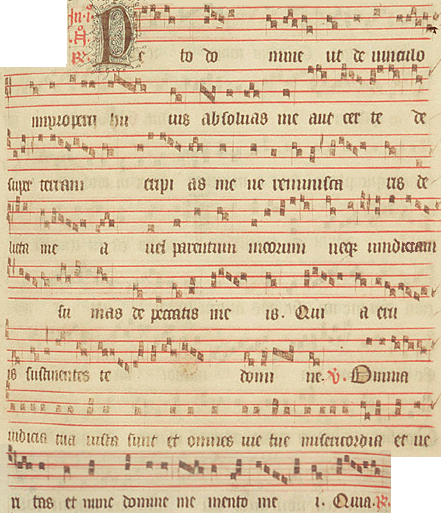 Peto domine ut de vinculo
improperii huius absolvas me aut certe de
super terram eripias me ne reminiscaris de
licta mea vel parentum meorum neque vindictam
sumas de peccatis meis. Quia eru
is sustinentes te domine. V. Omnia
iudicia tua iusta sunt et omnes vie tue misericordia et ve
ritas et nunc domine memento mei. Quia. R.